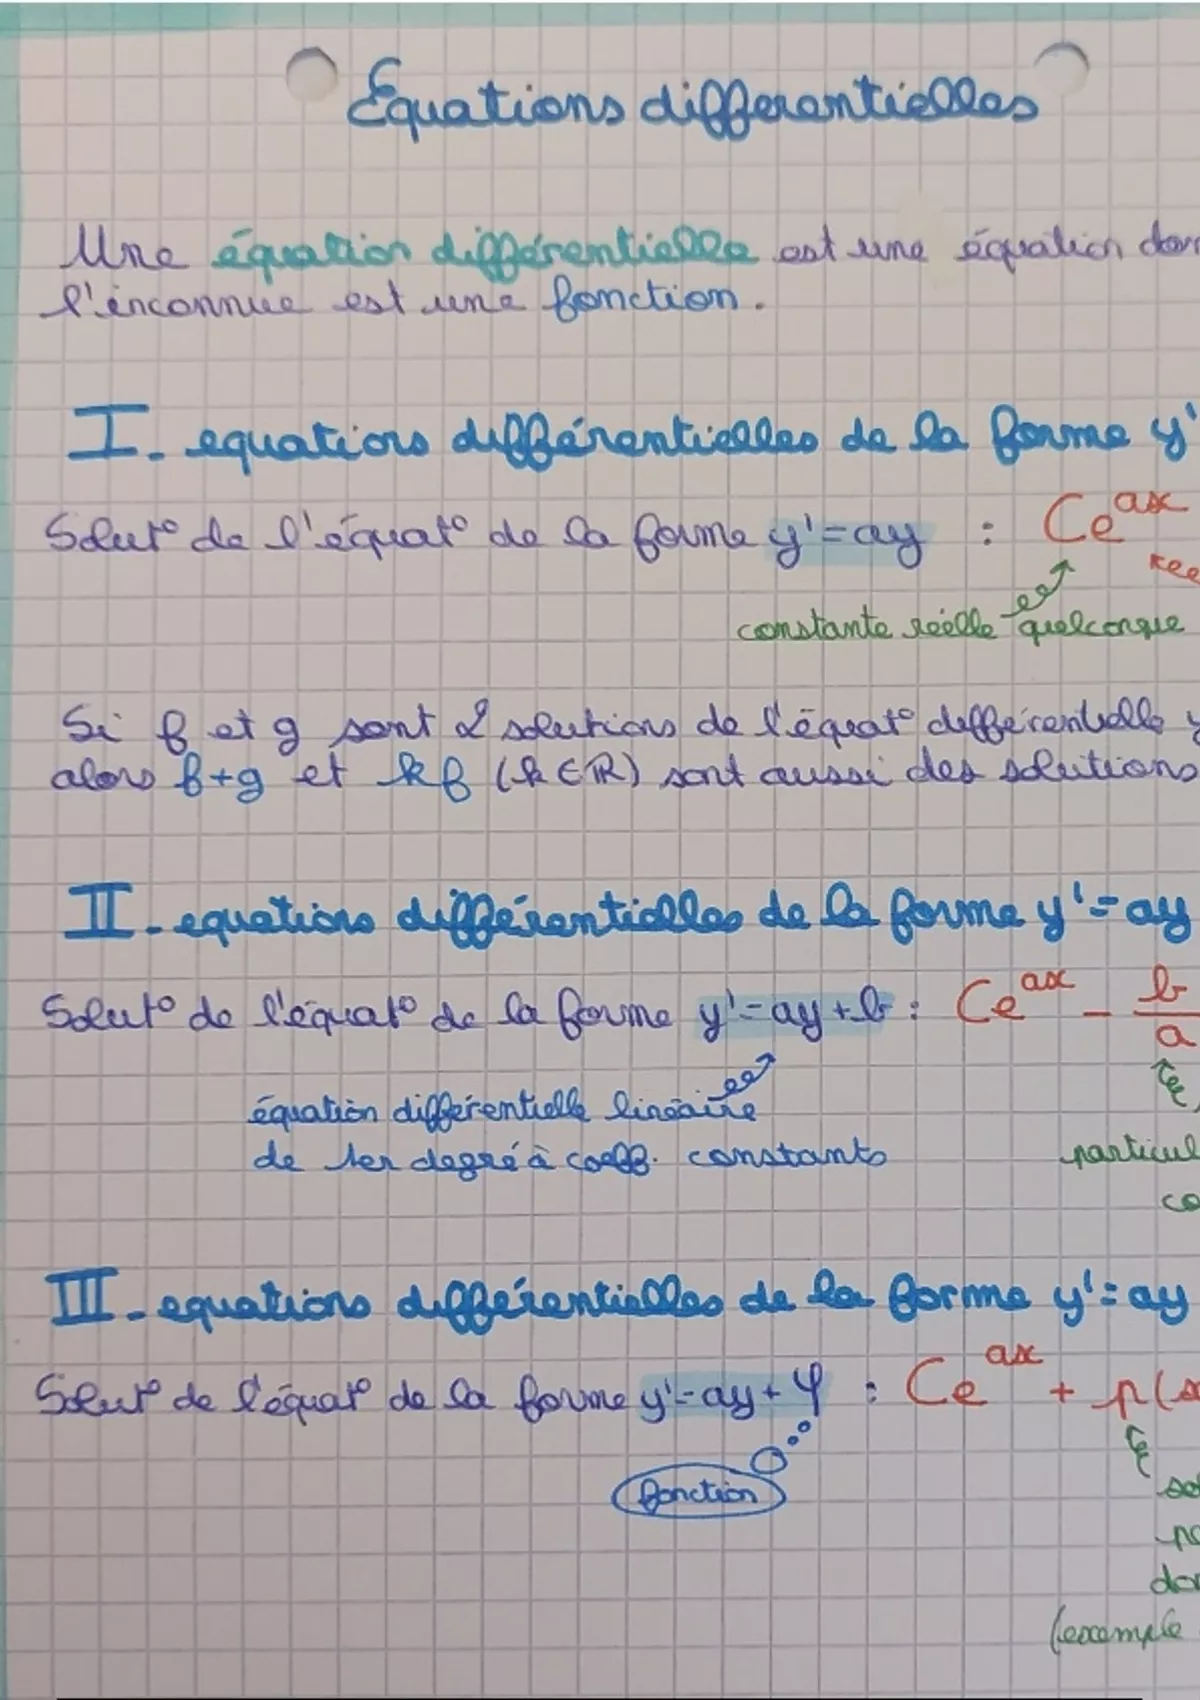 Équations differentielles
Une équation différentielle est une équation
l'inconnue est une fonction.
I. equations différentielles de la forme y'
Solut° de l'équat° de la forme y'=ay : Ce^ax
constante réelle quelconque
Si f et g sont 2 solutions de l'équat° différentielle
alors f+g et kf (k∈ℝ) sont aussi des solutions
II - equations différentielles de la forme y'=ay
Solut° de l'équat° de la forme y'=ay+b : Ce^ax - b/a
équation différentielle linéaire
de 1er degré à coeff. constants
III - equations différentielles de la forme y'=ay
Solut° de l'équat° de la forme y'=ay+φ : Ce^ax + p(
fonction
(exemple